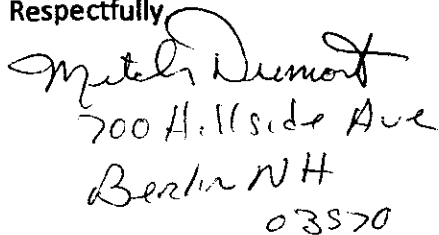 Respectfully
Mitch Dumont
700 Hillside Ave
Berlin NH
03570